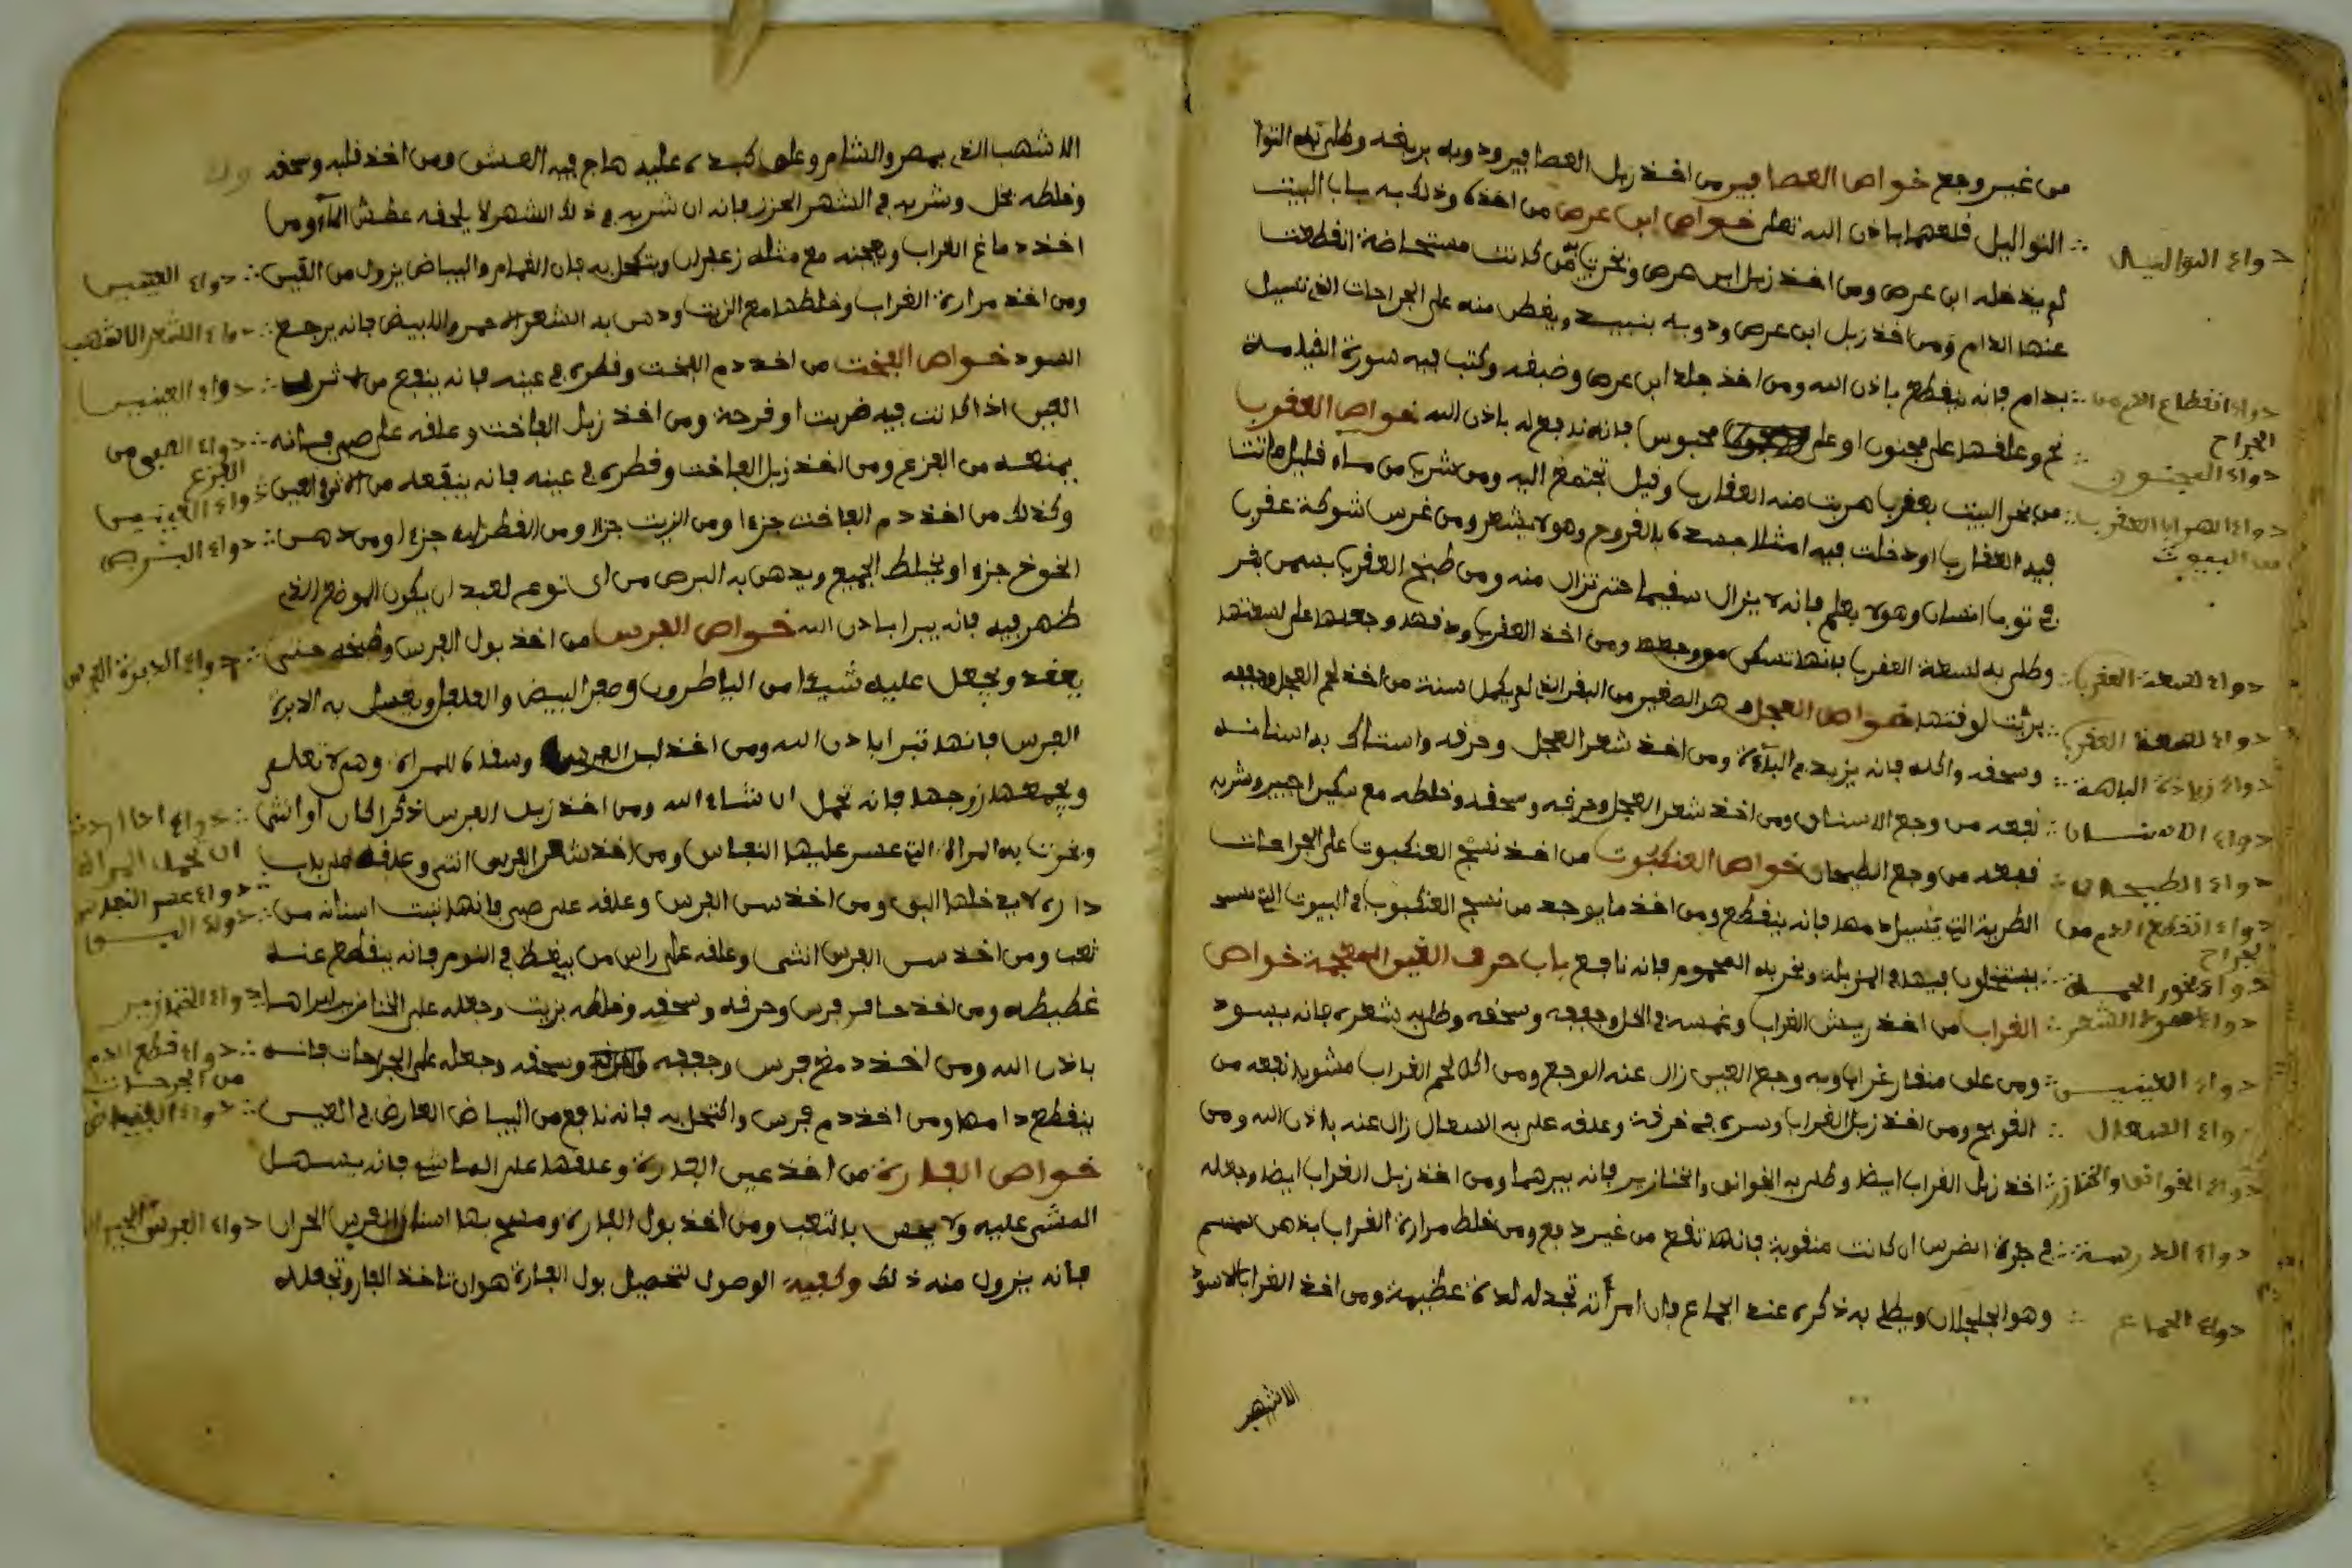 من غير وجع خواص العصافير من اخذ زبل العصافير ودوبه بريقه وطلى به التوا
دواء التواليل ∴ التواليل قلعها باذن الله تعلى خواص ابن عرص من اخذه وذلك به باب البيت
لم يدخله ابن عرص ومن اخذ زبل ابن عرص وبخرت به من كانت مستحاضة انقطعت
عنها الدام ومن اخذ زبل ابن عرص ودوبه بنبيد ويقطر منه على الجراحات التي تسيل
دواء انقطاع الدم من الجراح ∴ بدام فانه ينقطع باذن الله ومن اخذ جلد ابن عرص وكتب فيه سورة
دواء المجنون ∴ وعلقها على مجنون او على محبوس فانه نافع له باذن الله خواص العقرب
دواء الهراب العقرب من البيوت ∴ من بخر البيت بعقرب هربت منه العقارب وقيل تجتمع اليه ومن شرب من ماء قليل ماتت
فيه العقارب او دخلت فيه امتلا جسده بالقروح وهو لا يشعر ومن غرس شوكة عقرب
في توب انسان وهو لا يعلم فانه لا يزال سقيما حتى تزال منه ومن طبخ العقرب بسمن بقر
دواء لسعة العقرب ∴ وطلى به لسعة العقرب فانها تسكن ومن اخذ العقرب ودقها وجعلها على لسعتها
دواء لسعة العقرب ∴ برئت لوقتها خواص العجل هو الصغير من البقر الذي لم يكمل سنة من اخذ لحم العجل وجففه
دواء زيادة الباهة ∴ وسحقه واكله فانه يزيد في الباءة ومن اخذ شعر العجل وحرقه واستاك به اسنانه
دواء الاسنان ∴ نفعه من وجع الاسنان ومن اخذ شعر العجل وحرقه وسحقه وخلطه مع وشربه
دواء الطيحان ∴ نفعه من وجع الطيحان خواص العنكبوت من اخذ نسج العنكبوت على الجراحات
دواء انقطاع الدم من الجراح الطرية التي يسيل دمها فانه ينقطع ومن اخذ ما يوجد من نسج العنكبوت في البيوت التي
دواء بخور الحمى ∴ وبخر به المحموم فانه نافع باب حرف الغين المعجمة خواص
دواء الشعر ∴ الغراب من اخذ ريش الغراب وغمسه في الخل وجففه وسحقه وطلى به شعره فانه يسود
دواء العينين ∴ ومن علق منقار غراب وبه وجع العين زال عنه الوجع ومن اكل لحم الغراب مشويا نفعه من
دواء السعال ∴ القولنج ومن اخذ زبل الغراب وسره في خرقة وعلقه على به السعال زال عنه باذن الله ومن
دواء الخوانق والخنازر ∴ اخذ زبل الغراب ايضا وطلى به الخوانق والخنازير فانه يبرهما ومن اخذ زبل الغراب ايضا وجعله
دواء الدرسة ∴ في الضرس ان كانت منقوبة فانها تقع من غير ومن خلط مرارة الغراب بدهن سمسم
دواء الجماع ∴ وهو الجلجلان ويطلى به ذكره عند الجماع فان امرأته تجد له لذة عظيمة ومن اخذ الغراب الاسود
الاشهب
الاشهب الذي بمصر والشام وعلق كبده عليه هاج فيه العشق ومن اخذ قلبه وسحقه
وخلطه بخل وشربه في الشهر الحزر فانه ان شربه في ذلك الشهر لا يلحقه عطش الماء ومن
اخذ دماغ الغراب وعجنه مع مثله زعفران ويتكحل به فان الغمام والبياض يزول من العين ∴ دواء العينين
ومن اخذ مرارة الغراب وخلطها مع الزيت ودهن به الشعر الاحمر والابيض فانه يرجع ∴ دواء الشعر الاشهب
اسود خواص الفخت من اخذ دم الفخت وقطره في عينه فانه ينفع من ∴ دواء العينين
العين اذا كانت فيه ضربت او قرحة ومن اخذ زبل الفاخت وعلقه على صبي فانه ∴ دواء الصبي من الفزع
يمنعه من الفزع ومن اخذ زبل الفاخت وقطره في عينه فانه ينفعه من العين ∴ دواء العينين
وكذلك من اخذ دم الفاخت جزءا ومن الزيت جزءا ومن القطران جزءا ومن دهن ∴ دواء البرص
الخوخ جزءا ويخلط الجميع ويدهن به البرص من اي نوع بعد ان يكون الموضع الذي
ظهر فيه فانه يبرا باذن الله خواص الفرس من اخذ بول الفرس وطبخه حتى ∴ دواء الدبرة
يعقد ويجعل عليه شيئا من وصفر البيض والفلفل ويغسل به الدبرة
الفرس فانها تبرا باذن الله ومن اخذ لبن الفرس وسقاه للمراة وهي لا تعلم
ويجمعها زوجها فانه تحمل ان شاء الله ومن اخذ زبل الفرس ذكرا كان او انثى ∴ دواء اذا اردت ان تحمل المراة
وبخرت به المراة التي عسر عليها النفاس ومن اخذ شعر الفرس انثى وعلقه على باب ∴ دواء عسر النفاس
داره لا يدخلها البق ومن اخذ سن الفرس وعلقه على صبي فانها تنبت اسنانه من ∴
تعب ومن اخذ سن الفرس انثى وعلقه على راس من يغط في النوم فانه ينقطع عنه
غطيطه ومن اخذ حافر فرس وحرقه وسحقه وخلطه بزيت وجعله على الخنازير ابراها ∴ دواء الخنازير
باذن الله ومن اخذ دمغ فرس وجففه وسحقه وجعله على الجراحات فانه ∴ دواء قطع الدم من الجرحات
ينقطع دامها ومن اخذ دم فرس واكتحل به فانه نافع من البياض العارض في العين ∴ دواء البياض
خواص الفارة من اخذ عين الفارة وعلقها على الماشي فانه يسهل
المشي عليه ولا يحس بالتعب ومن اخذ بول الفارة ومسح بها اسنان الفرس الحران دواء الفرس
فانه يزول منه ذلك وكيفية الوصول لتحصيل بول الفارة هو ان تاخذ الفار وتجعله